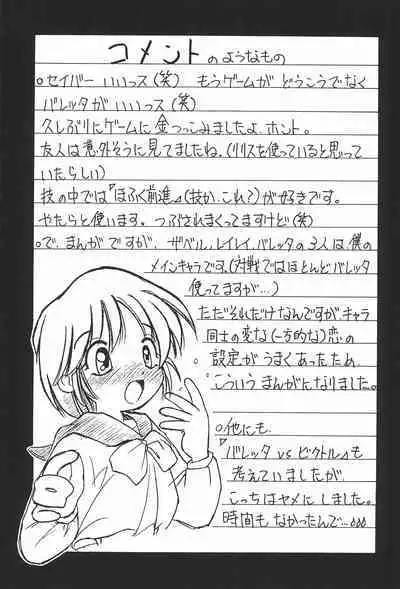 コメントのようなもの
○セイバー いいっス(笑) もうゲームが どうこうでなく
バレッタが いいっス(笑)
久しぶりにゲームに金つっこみましたよ、ホント。
友人は意外そうに見てましたね。(リリスを使っていると思って
いたらしい)
技の中では『ほふく前進』(技か、これ?)が好きです。
やたらと使います。つぶされまくってますけど(笑)
○で、まんがですが、ザベル、レイレイ、バレッタの3人は、僕の
メインキャラです。(対戦ではほとんどバレッタ
使ってますが…)
ただそれだけなんですが、キャラ
同士の変な(一方的な)恋の
設定が うまくあったため、
こういう まんがになりました。
○他にも
『バレッタ vs ビクトル』も
考えていましたが
こっちは ヤメにしました。
時間も なかったんで…